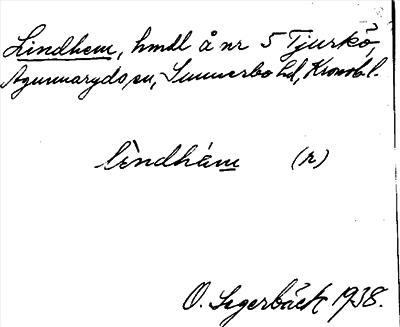 Lindhem, hmdl å nr 5 Tjurkö,
Agunnaryds sn, Sunnerbo hd, Kronobl.
lìndhém (r)
O. Segerbäck 1938.